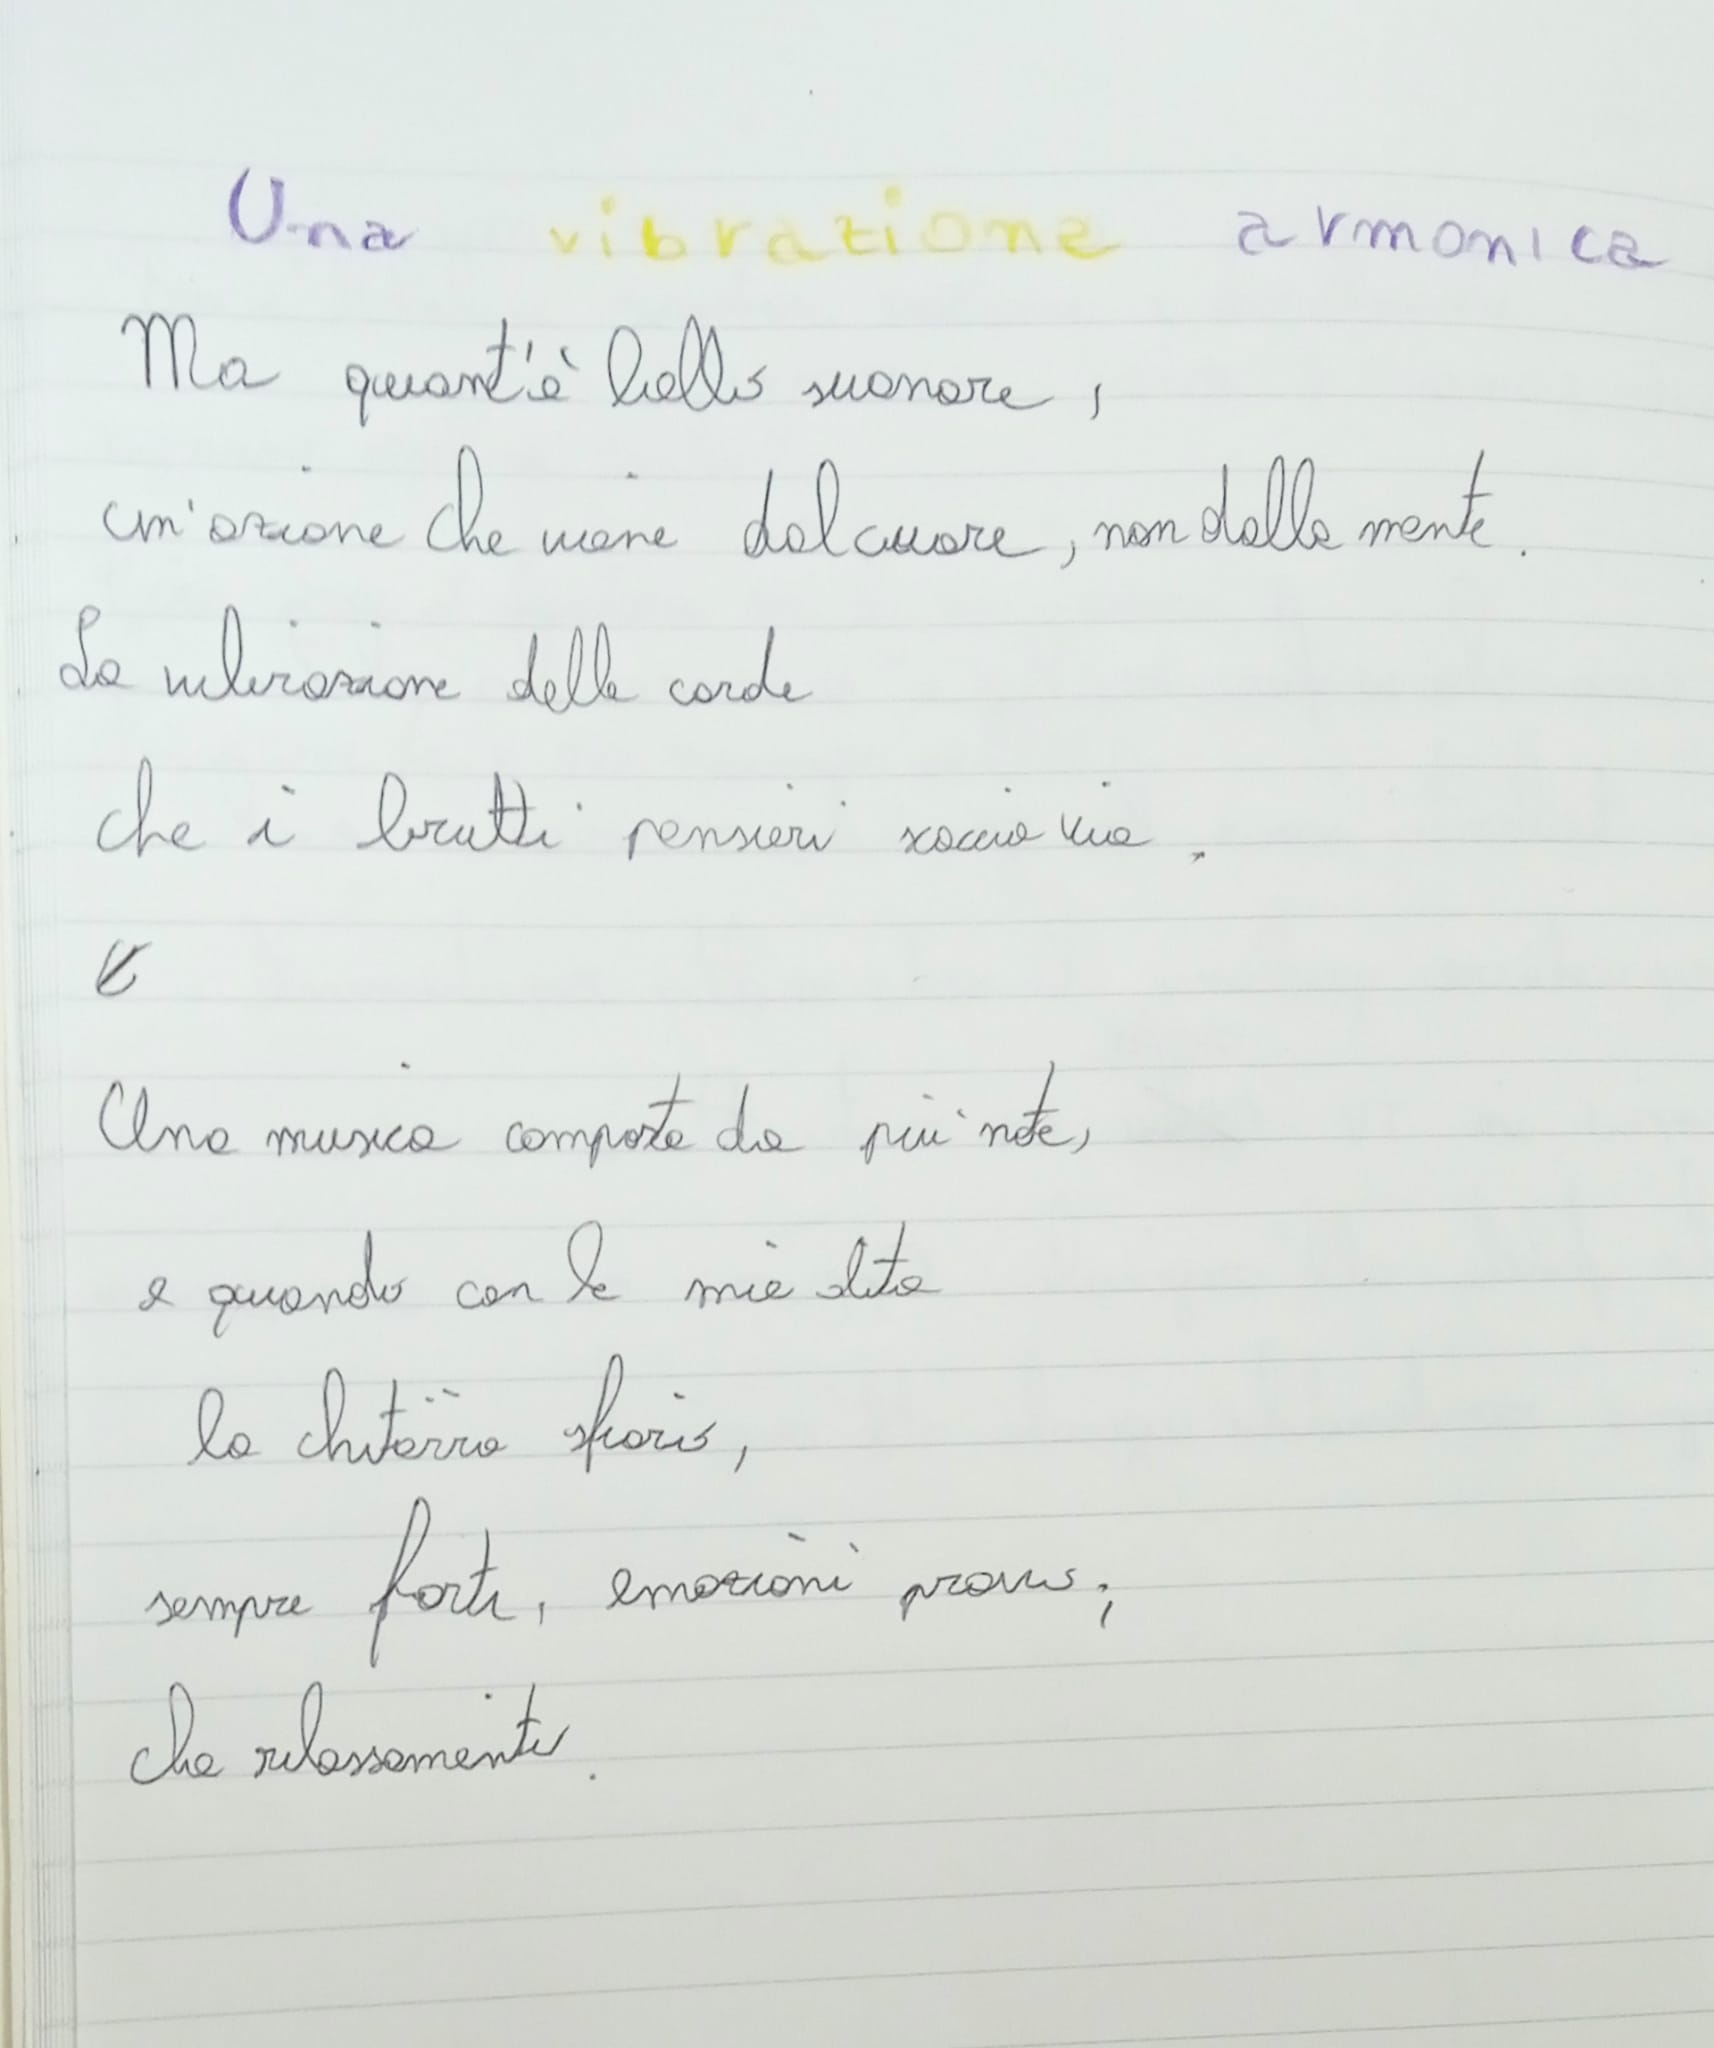 Una vibrazione armonica
Ma quant'è bello suonare,
un'azione che viene dal cuore, non dalla mente.
La vibrazione delle corde
che i brutti pensieri caccia via.
Una musica composta da più note,
e quando con le mie dita
la chitarra sfioro,
sempre forti, emozioni provo,
che rilassamento.